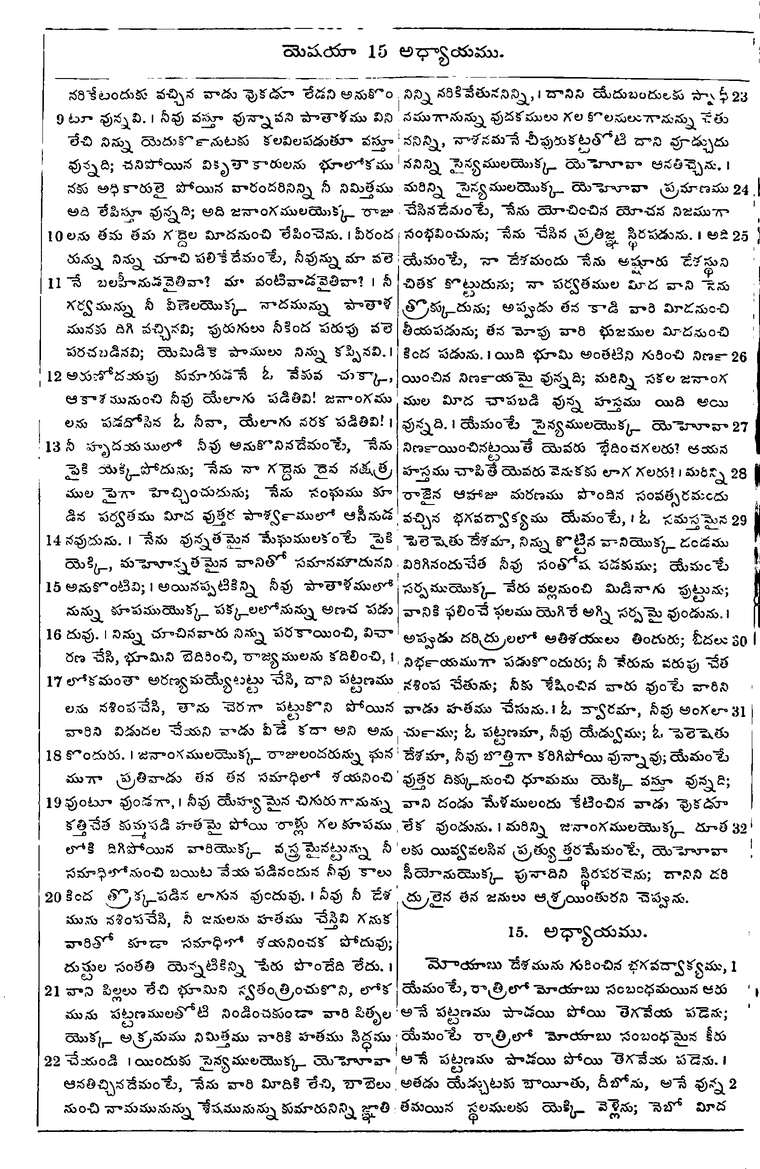 యెషయా 15 అధ్యాయము.
నరికేటందుకు వచ్చిన వాడు వొకడూ లేడని అనుకొం
9 టూ వున్నవి. । నీవు వస్తూ వున్నావని పాతాళము విని
లేచి నిన్ను యెదుకొ౯నుటకు కలవిలపడుతూ వస్తూ
వున్నది; చనిపోయిన వికృతాకారులను భూలోకము
నకు అధికారులై పోయిన వారందరినిన్ని నీ నిమిత్తము
అది లేపిస్తూ వున్నది; అది జనాంగములయొక్క రాజు
10 లను తమ తమ గద్దెల మీదనుంచి లేపించెను. । వీరంద
రున్ను నిన్ను చూచి పలికేదేమంటే, నీవున్ను మా వలె
11 నే బలహీనుడవైతివా? మా వంటివాడవైతివా? । నీ
గర్వమున్ను నీ వీణెలయొక్క నాదమున్ను పాతాళ
మునకు దిగి వచ్చినవి; పురుగులు నీకింద పరుపు వలె
పరచబడినవి; యెమిడికె పాములు నిన్ను కప్పినవి. ।
12 అరుణోదయపు కుమారుడవే ఓ వేకువ చుక్కా,
ఆకాశమునుంచి నీవు యేలాగు పడితివి! జనాంగము
లను పడదోసిన ఓ నీవా, యేలాగు నరక పడితివి! ।
13 నీ హృదయములో నీవు అనుకొనినదేమంటే, నేను
పైకి యెక్కిపోదును; నేను నా గద్దెను దైవ నక్షత్ర
ముల పైగా హెచ్చించుదును; నేను సంఘము కూ
డిన పర్వతము మీద వుత్తర పార్శ్వ౯ములో ఆసీనుడ
14 నవుదును. । నేను వున్నతమైన మేఘములకంటే పైకి
యెక్కి, మహోన్నతమైన వానితో సమానమౌదునని
15 అనుకొంటివి; । అయినప్పటికిన్ని నీవు పాతాళములో
నున్ను కూపముయొక్క పక్కలలోనున్ను అణచ పడు
16 దువు. । నిన్ను చూచినవారు నిన్ను పరకాయించి, విచా
రణ చేసి, భూమిని బెదిరించి, రాజ్యములను కదిలించి, ।
17 లోకమంతా అరణ్యమయ్యేటట్టు చేసి, దాని పట్టణము
లను నశింపచేసి, తాను చెరగా పట్టుకొని పోయిన
వారిని విడుదల చేయని వాడు వీడే కదా అని అను
18 కొందురు. । జనాంగములయొక్క రాజులందరున్ను ఘన
ముగా ప్రతివాడు తన తన సమాధిలో శయనించి
19 వుంటూ వుండగా, । నీవు యేహ్యమైన చిగురుగానున్ను
కత్తిచేత కుమ్మపడి హతమై పోయి రాళ్లు గల కూపము
లోకి దిగిపోయిన వారియొక్క వస్త్రమైనట్టున్ను నీ
సమాధిలోనుంచి బయిట వేయ పడినందున నీవు కాలు
20 కింద త్రొక్కపడిన లాగున వుందువు. । నీవు నీ దేశ
మును నశింపచేసి, నీ జనులను హతము చేస్తివి గనుక
వారితో కూడా సమాధిలో శయనించక పోదువు;
దుష్టుల సంతతి యెన్నటికిన్ని పేరు పొందేది లేదు. ।
21 వాని పిల్లలు లేచి భూమిని స్వతంత్రించుకొని, లోక
మును పట్టణములతోటి నిండించకుండా వారి పితృల
యొక్క అక్రమము నిమిత్తము వారికి హతము సిద్ధము
22 చేయండి । యిందుకు సైన్యములయొక్క యెహోవా
ఆనతిచ్చినదేమంటే, నేను వారి మీదికి లేచి, బాబెలు
నుంచి నామమునున్ను శేషమునున్ను కుమారునిన్ని జ్ఞాతి
నిన్ని నరికివేతునన్ని, । దానిని యేదుబందులకు స్వాధీ 23
నముగానున్ను వుదకములు గల కొలనులుగానున్ను చేతు
ననిన్ని, నాశనమనే చీపురుకట్టతోటి దాని వూడ్చుదు
ననిన్ని సైన్యములయొక్క యెహోవా ఆనతిచ్చెను. ।
మరిన్ని సైన్యములయొక్క యెహోవా ప్రమాణము 24
చేసినదేమంటే, నేను యోచించిన యోచన నిజముగా
సంభవించును; నేను చేసిన ప్రతిజ్ఞ స్థిరపడును. । అది 25
యేమంటే, నా దేశమందు నేను అష్షూరు దేశస్థుని
చితక కొట్టుదును; నా పర్వతముల మీద వాని నేను
త్రొక్కుదును; అప్పుడు తన కాడి వారి మీదనుంచి
తీయపడును; తన మోపు వారి భుజముల మీదనుంచి
కింద పడును. । యిది భూమి అంతటిని గురించి నిణ౯ 26
యించిన నిణ౯యమై వున్నది; మరిన్ని సకల జనాంగ
ముల మీద చాపబడి వున్న హస్తము యిది అయి
వున్నది. । యేమంటే సైన్యములయొక్క యెహోవా 27
నిణ౯యించినట్టయితే యెవరు భేదించగలరు? ఆయన
హస్తము చాపితే యెవరు వెనుకకు లాగ గలరు? । మరిన్ని 28
రాజైన ఆహాజు మరణము పొందిన సంవత్సరమందు
వచ్చిన భగవద్వాక్యము యేమంటే, । ఓ సమస్తమైన 29
పెలెషెతు దేశమా, నిన్ను కొట్టిన వానియొక్క దండము
విరిగినందుచేత నీవు సంతోష పడకుము; యేమంటే
సర్పముయొక్క వేరు వల్లనుంచి మిడినాగు పుట్టును;
వానికి ఫలించే ఫలము యెగిరే అగ్ని సర్పమై వుండును. ।
అప్పుడు దరిద్రులలో అతిశయులు తిందురు; బీదలు 30
నిభ౯యముగా పడుకొందురు; నీ వేరును వరుపు చేత
నశింప చేతును; నీకు శేషించిన వారు వుంటే వారిని
వాడు హతము చేసును. । ఓ ద్వారమా, నీవు అంగలా 31
చు౯ము; ఓ పట్టణమా, నీవు యేడ్వుము; ఓ పెలెషెతు
దేశమా, నీవు బొత్తిగా కరిగిపోయి వున్నావు; యేమంటే
వుత్తర దిక్కునుంచి ధూమము యెక్కి వస్తూ వున్నది;
వాని దండు మేళములందు కేటించిన వాడు వొకడూ
లేక వుండును. । మరిన్ని జనాంగములయొక్క దూత 32
లకు యివ్వవలసిన ప్రత్యుత్తరమేమంటే, యెహోవా
సీయోనుయొక్క పునాదిని స్థిరపరచెను; దానిని దరి
ద్రులైన తన జనులు ఆశ్రయింతురని చెప్పును.
15. అధ్యాయము.
మోయాబు దేశమును గురించిన భగవద్వాక్యము, 1
యేమంటే, రాత్రిలో మోయాబు సంబంధమయిన ఆరు
అనే పట్టణము పాడయి పోయి తెగవేయ పడెను;
యేమంటే రాత్రిలో మోయాబు సంబంధమైన కీరు
అనే పట్టణము పాడయి పోయి తెగవేయ పడెను. ।
అతడు యేడ్చుటకు బాయితు, దీబోను, అనే వున్న 2
తమయిన స్థలములకు యెక్కి వెళ్లెను; నెబో మీద